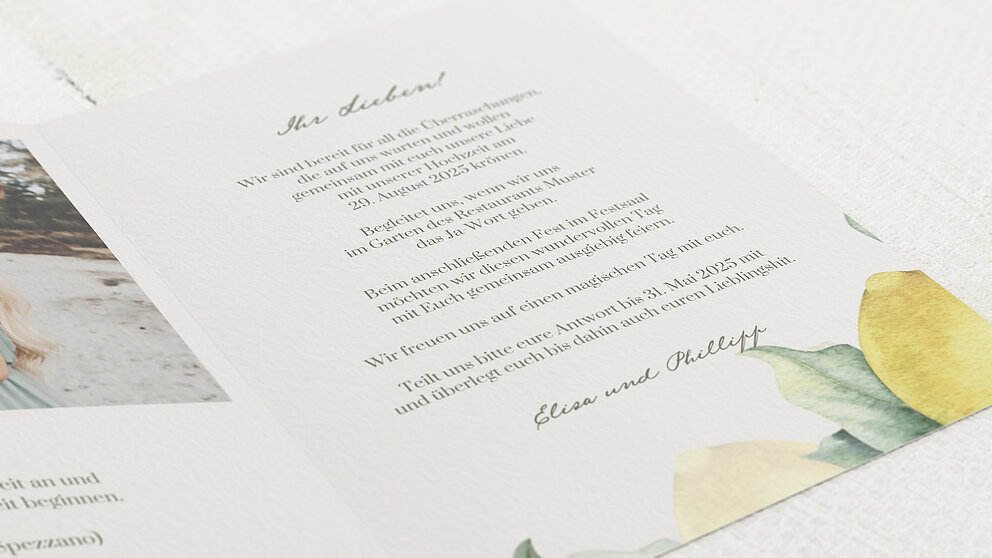 Ihr Lieben!
Wir sind bereit für all die Überraschungen,
die auf uns warten und wollen
gemeinsam mit euch unsere Liebe
mit unserer Hochzeit am
29. August 2025 krönen.
Begleitet uns, wenn wir uns
im Garten des Restaurants Muster
das Ja-Wort geben.
Beim anschließenden Fest im Festsaal
möchten wir diesen wundervollen Tag
mit Euch gemeinsam ausgiebig feiern.
Wir freuen uns auf einen magischen Tag mit euch.
Teilt uns bitte eure Antwort bis 31. Mai 2025 mit
und überlegt euch bis dahin auch euren Lieblingshit.
Elisa und Phillipp
eit an und
eit beginnen.
Spezzano)